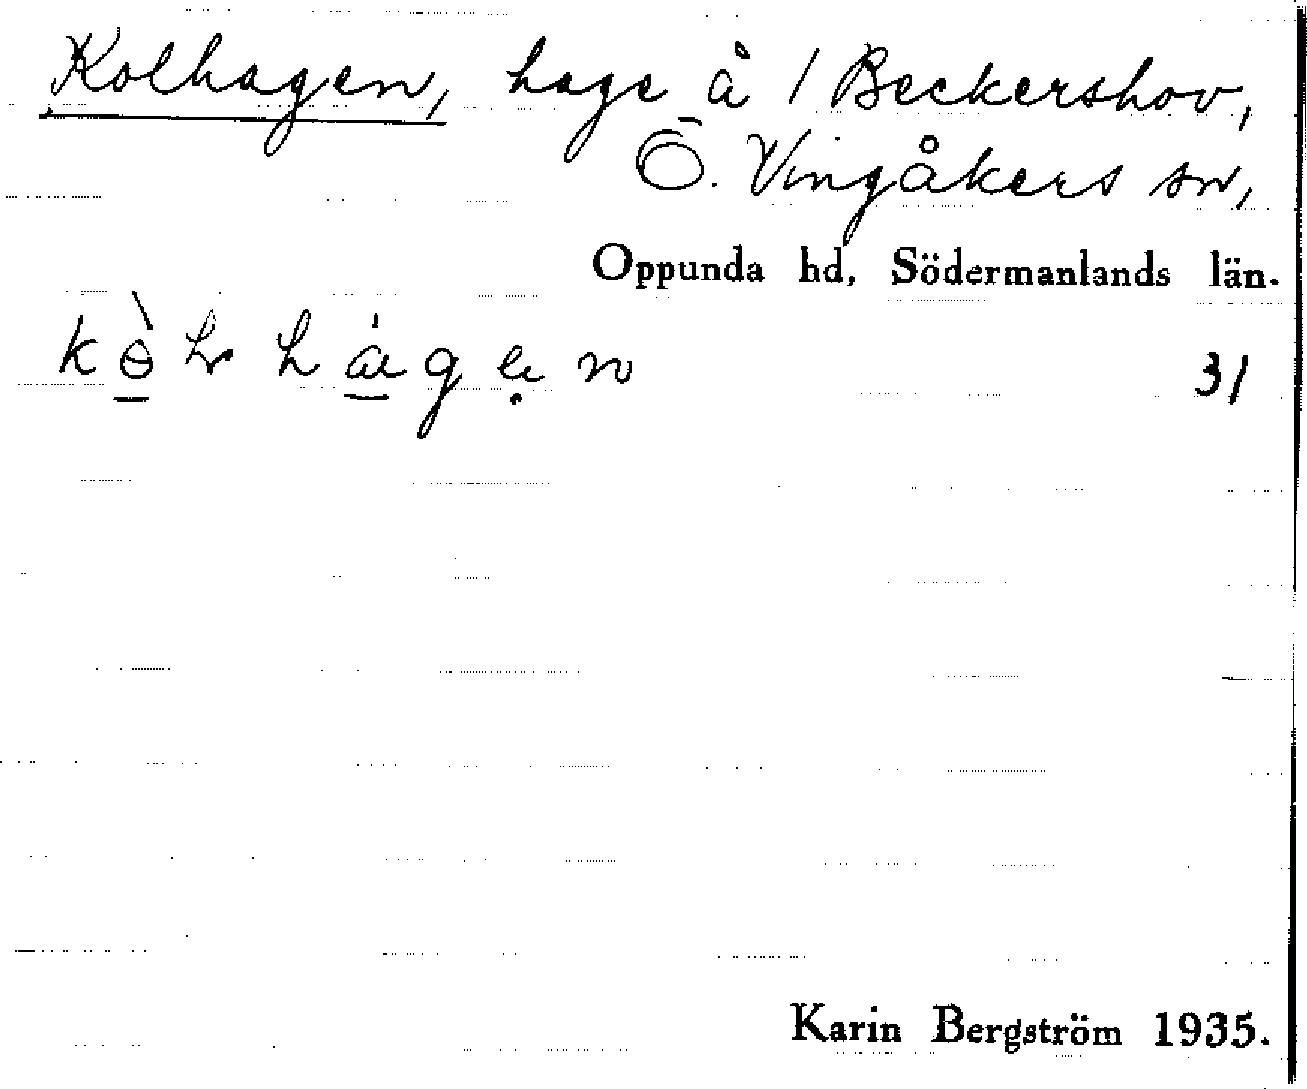 Kolhagen, hage å / Beckershov,
Ö. Vingåkers sn,
Oppunda hd, Södermanlands län.
31
Karin Bergström 1935.